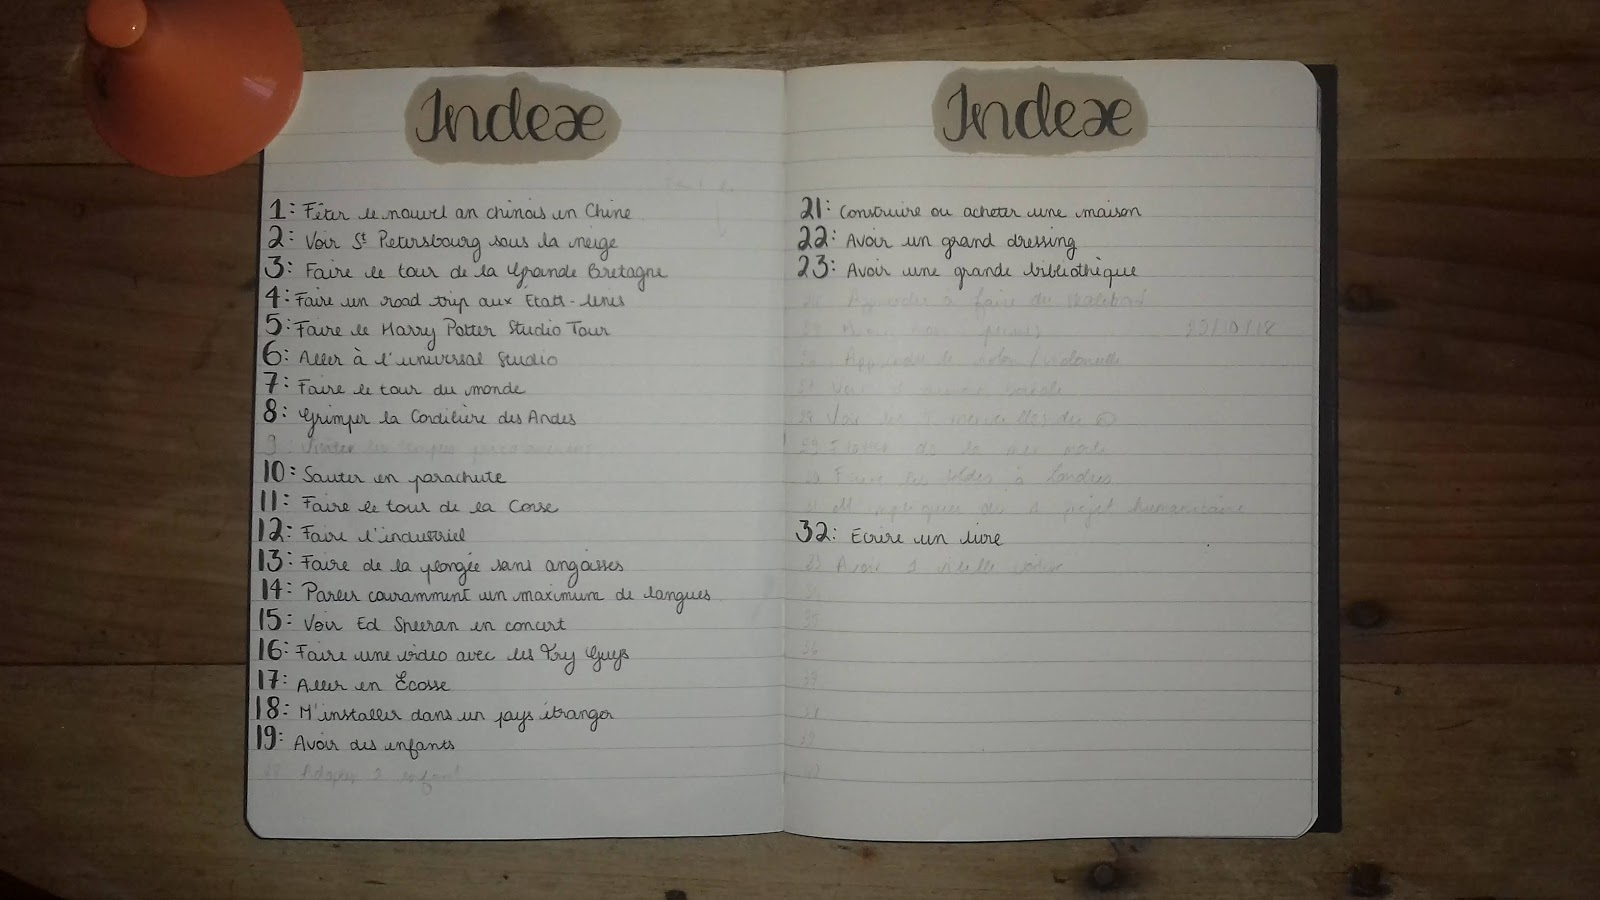 Index
1: Fêter le nouvel an chinois en Chine
2: Voir St Petersbourg sous la neige
3: Faire le tour de la Grande Bretagne
4: Faire un road trip aux Etats-Unis
5: Faire le Harry Potter Studio Tour
6: Aller à l'universal Studio
7: Faire le tour du monde
8: Grimper la Cordilière des Andes
9 Visiter les temples
10: Sauter en parachute
11: Faire le tour de la Corse
12: Faire l'industriel
13: Faire de la plongée sans angoisses
14: Parler couramment un maximum de langues
15: Voir Ed Sheeran en concert
16: Faire une video avec les Try Guys
17: Aller en Ecosse
18: M'installer dans un pays étranger
19: Avoir des enfants
Adopter 1 enfant
Index
21: Construire ou acheter une maison
22: Avoir un grand dressing
23: Avoir une grande bibliothèque
24 Apprendre à faire du skateboard
25 23/10/18
26 Apprendre le violon/violoncelle
27 Voir 1 aurore boréale
28 Voir les 7 merveilles du
29 Flotter de la mer morte
30 Faire les soldes à Londres
31 M'impliquer ds 1 projet humanitaire
32: Ecrire un livre
33 Avoir 1 vieille voiture
34
35
36
37
38
39
40